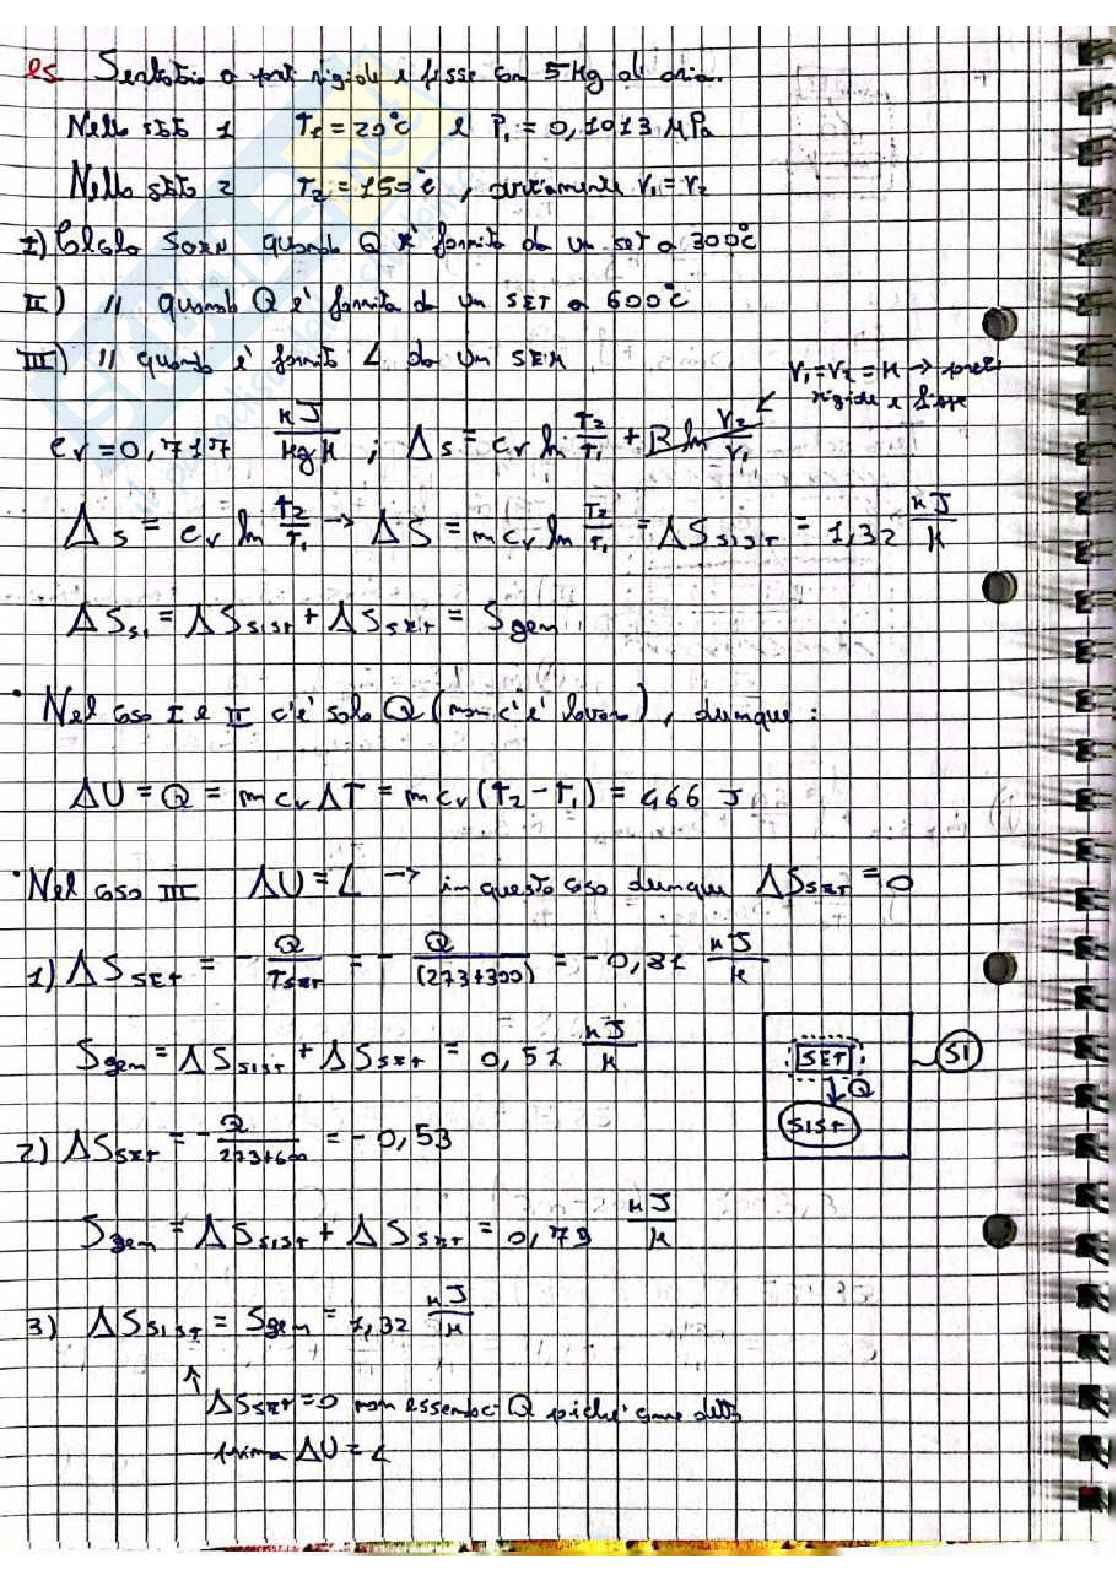 es Serbatoio a pareti rigide e fisse con 5 Kg di aria.
Nello stato 1 T₁ = 20°C e P₁ = 0,1013 MPa
Nello stato 2 T₂ = 150°C, V₁ = V₂
I) Calcolo SGEN quando Q è fornito da un SET a 300°C
II) // quando Q è fornita da un SET a 600°C
III) // quando è fornito L da un SEM
V₁ = V₂ = K → pareti
rigide e fisse
cv = 0,717 kJ/kgK ; Δs = cv ln T₂/T₁ + R ln V₂/V₁
Δs = cv ln T₂/T₁ → ΔS = m cv ln T₂/T₁ = ΔSSIST = 1,32 kJ/K
ΔSSI = ΔSSIST + ΔSSET = Sgen
· Nel caso I e II c'è solo Q (non c'è lavoro), dunque :
ΔU = Q = m cv ΔT = m cv (T₂ - T₁) = 466 J
· Nel caso III ΔU = L → in questo caso dunque ΔSSET = 0
1) ΔSSET = - Q/TSET = - Q/(273+300) = - 0,81 kJ/K
Sgen = ΔSSIST + ΔSSET = 0,51 kJ/K
SET
SI
Q
SIST
2) ΔSSET = - Q/273+600 = - 0,53
Sgen = ΔSSIST + ΔSSET = 0,79 kJ/K
3) ΔSSIST = Sgen = 1,32 kJ/K
↑
ΔSSET = 0 non essendoci Q poiché come detto
prima ΔU = L